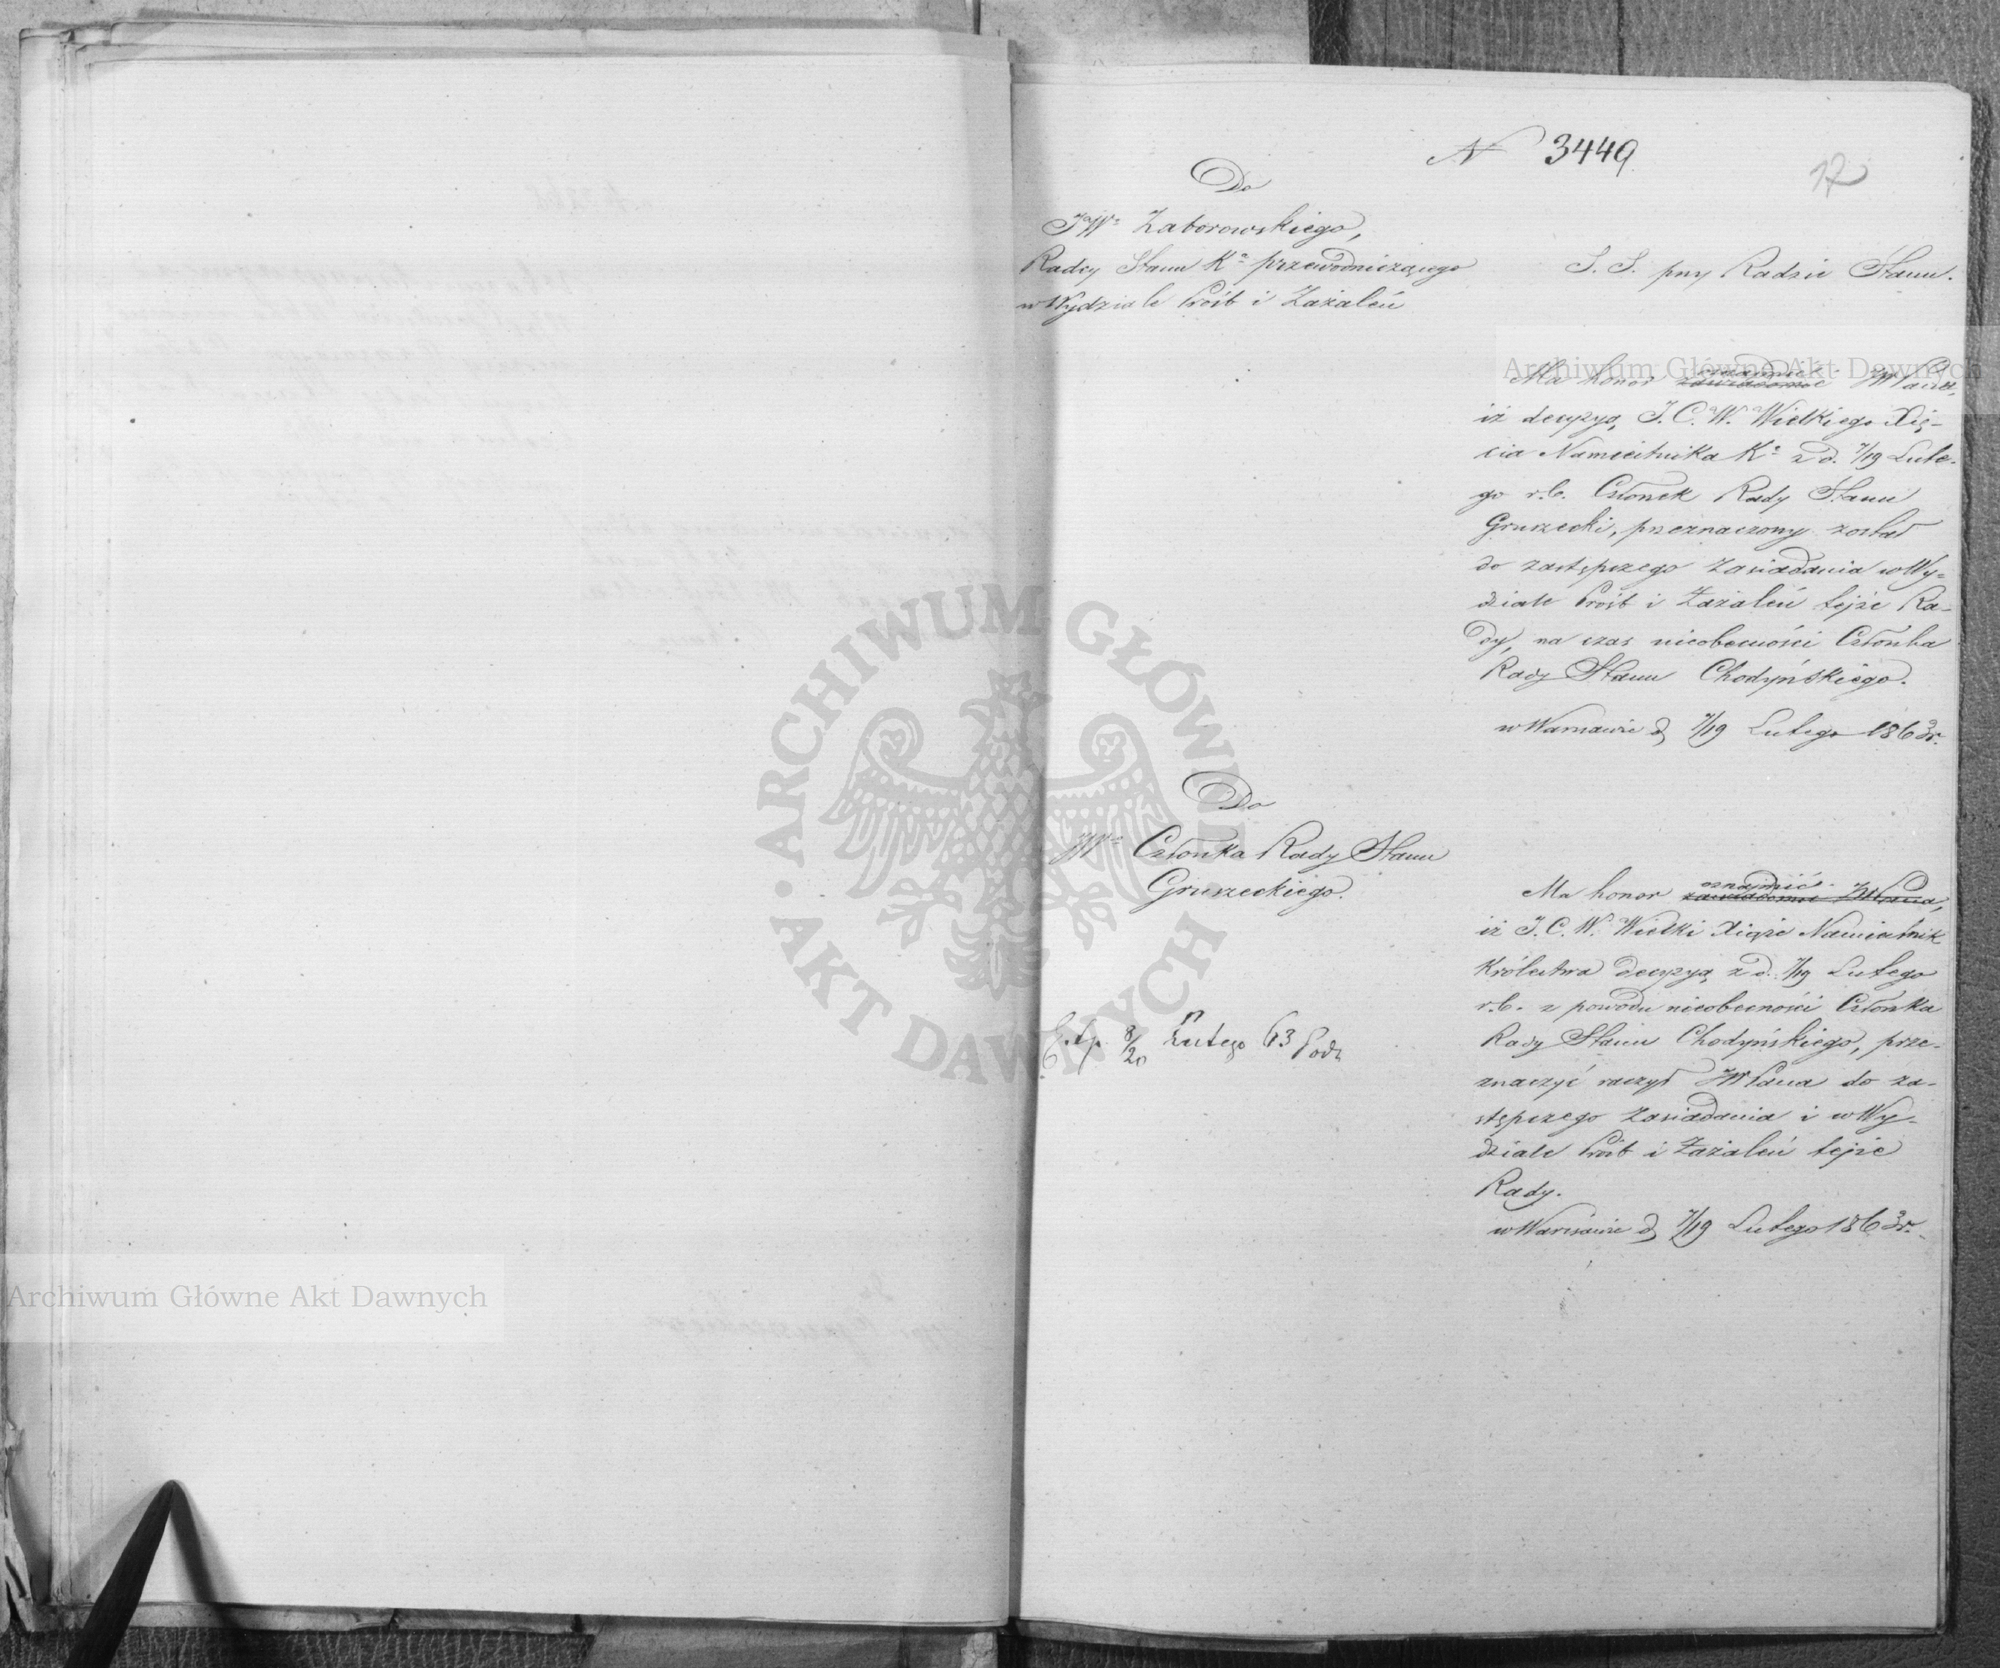 N 3449
17
Do
JWº Zaborowskiego,
Radcy Stanu Kº przewodniczącego
w Wydziale Próśb i Zażaleń
S. S. przy Radzie Stanu.
Ma honor zawiadomić oznajmić JWPanu,
iż decyzyą J. C. W. Wielkiego Xię-
cia Namiestnika Kº z d. 7/19 Lute-
go r.b. Członek Rady Stanu
Gruszecki, przeznaczony został
do zastępczego zasiadania w Wy-
dziale Próśb i Zażaleń tejże Ra-
dy, na czas nieobecności Członka
Rady Stanu Chodyńskiego.
w Warszawie d. 7/19 Lutego 1863 r.
Do
JWº Członka Rady Stanu
Gruszeckiego.
Ma honor zawiadomić oznajmić JWPanu,
iż J. C. W. Wielki Xiąże Namiestnik
Królestwa decyzyą z d. 7/19 Lutego
r.b. z powodu nieobecności Członka
Rady Stanu Chodyńskiego, prze-
znaczyć raczył JWPana do za-
stępczego zasiadania i w Wy-
dziale Próśb i Zażaleń tejże
Rady.
w Warszawie d. 7/19 Lutego 1863 r.
Exp. 8/20 Lutego 63
Archiwum Główne Akt Dawnych
Archiwum Główne Akt Dawnych
ARCHIWUM GŁÓWNE AKT DAWNYCH